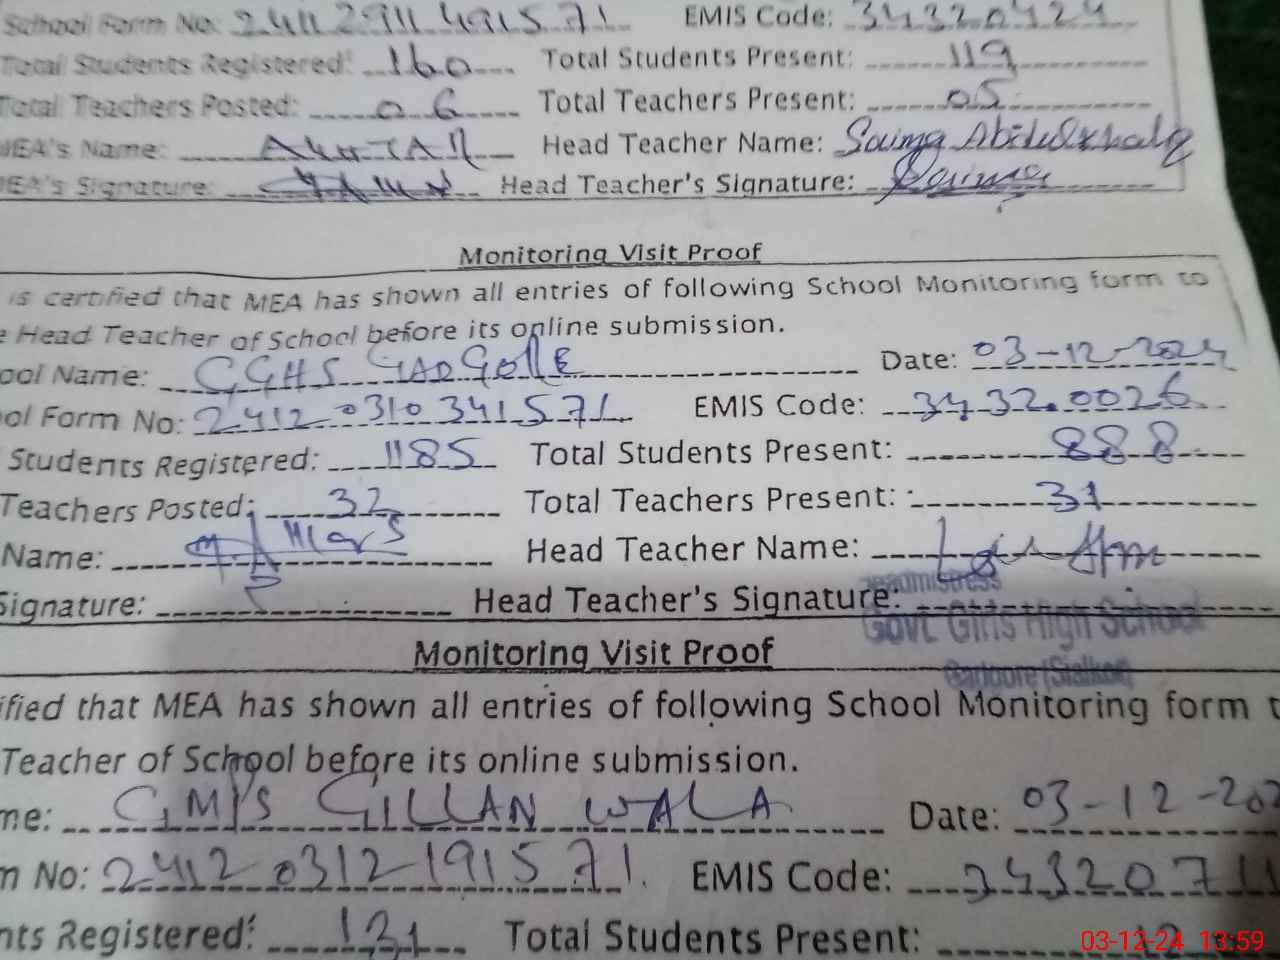 School Form No: 2411 2911 4915 71 EMIS Code: 34320424
Total Students Registered: 160 Total Students Present: 119
Total Teachers Posted: 06 Total Teachers Present: 05
MEA's Name: AKHTAR Head Teacher Name: Saima
MEA's Signature: Head Teacher's Signature: Saima
Monitoring Visit Proof
is certified that MEA has shown all entries of following School Monitoring form to
e Head Teacher of School before its online submission.
ool Name: GGHS Date: 03-12-2024
ol Form No: 2412 0310 341571 EMIS Code: 34320026
Students Registered: 1185 Total Students Present: 888
Teachers Posted: 32 Total Teachers Present: 31
Name: Head Teacher Name:
Signature: Head Teacher's Signature:
Headmistress
Govt. Girls High School
(Sialkot)
Monitoring Visit Proof
ified that MEA has shown all entries of following School Monitoring form t
Teacher of School before its online submission.
me: GMPS GILLAN WALA Date: 03-12-202
m No: 2412 0312 1915 71 EMIS Code: 34320711
nts Registered: 131 Total Students Present: 12
03-12-24 13:59